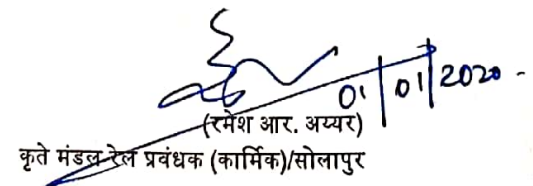 01/01/2020 -
(रमेश आर. अय्यर)
कृते मंडल रेल प्रवंधक (कार्मिक)/सोलापुर